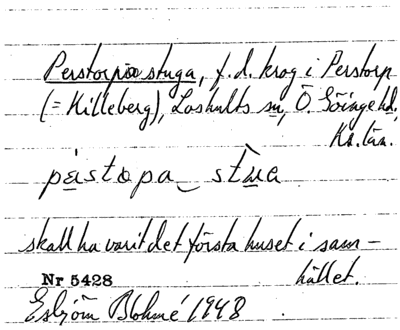 Perstorpastuga, f.d. krog i Perstorp
(= Killeberg), Loshults sn, Ö. Göinge hd,
Kr. län.
pàstopa_stùa
skall ha varit det första huset i sam-
hället.
Nr 5428
Esbjörn Blohmé 1948